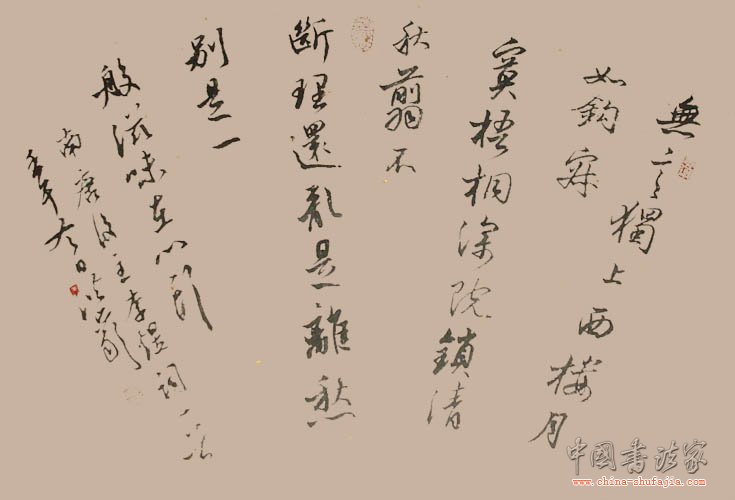 無言獨上西樓月
如鈎寂
寞梧桐深院鎖清
秋翦不
斷理還亂是離愁
別是一
般滋味在心頭
南唐後主李煜詞一首
中國書法家
www.china-shufajia.com